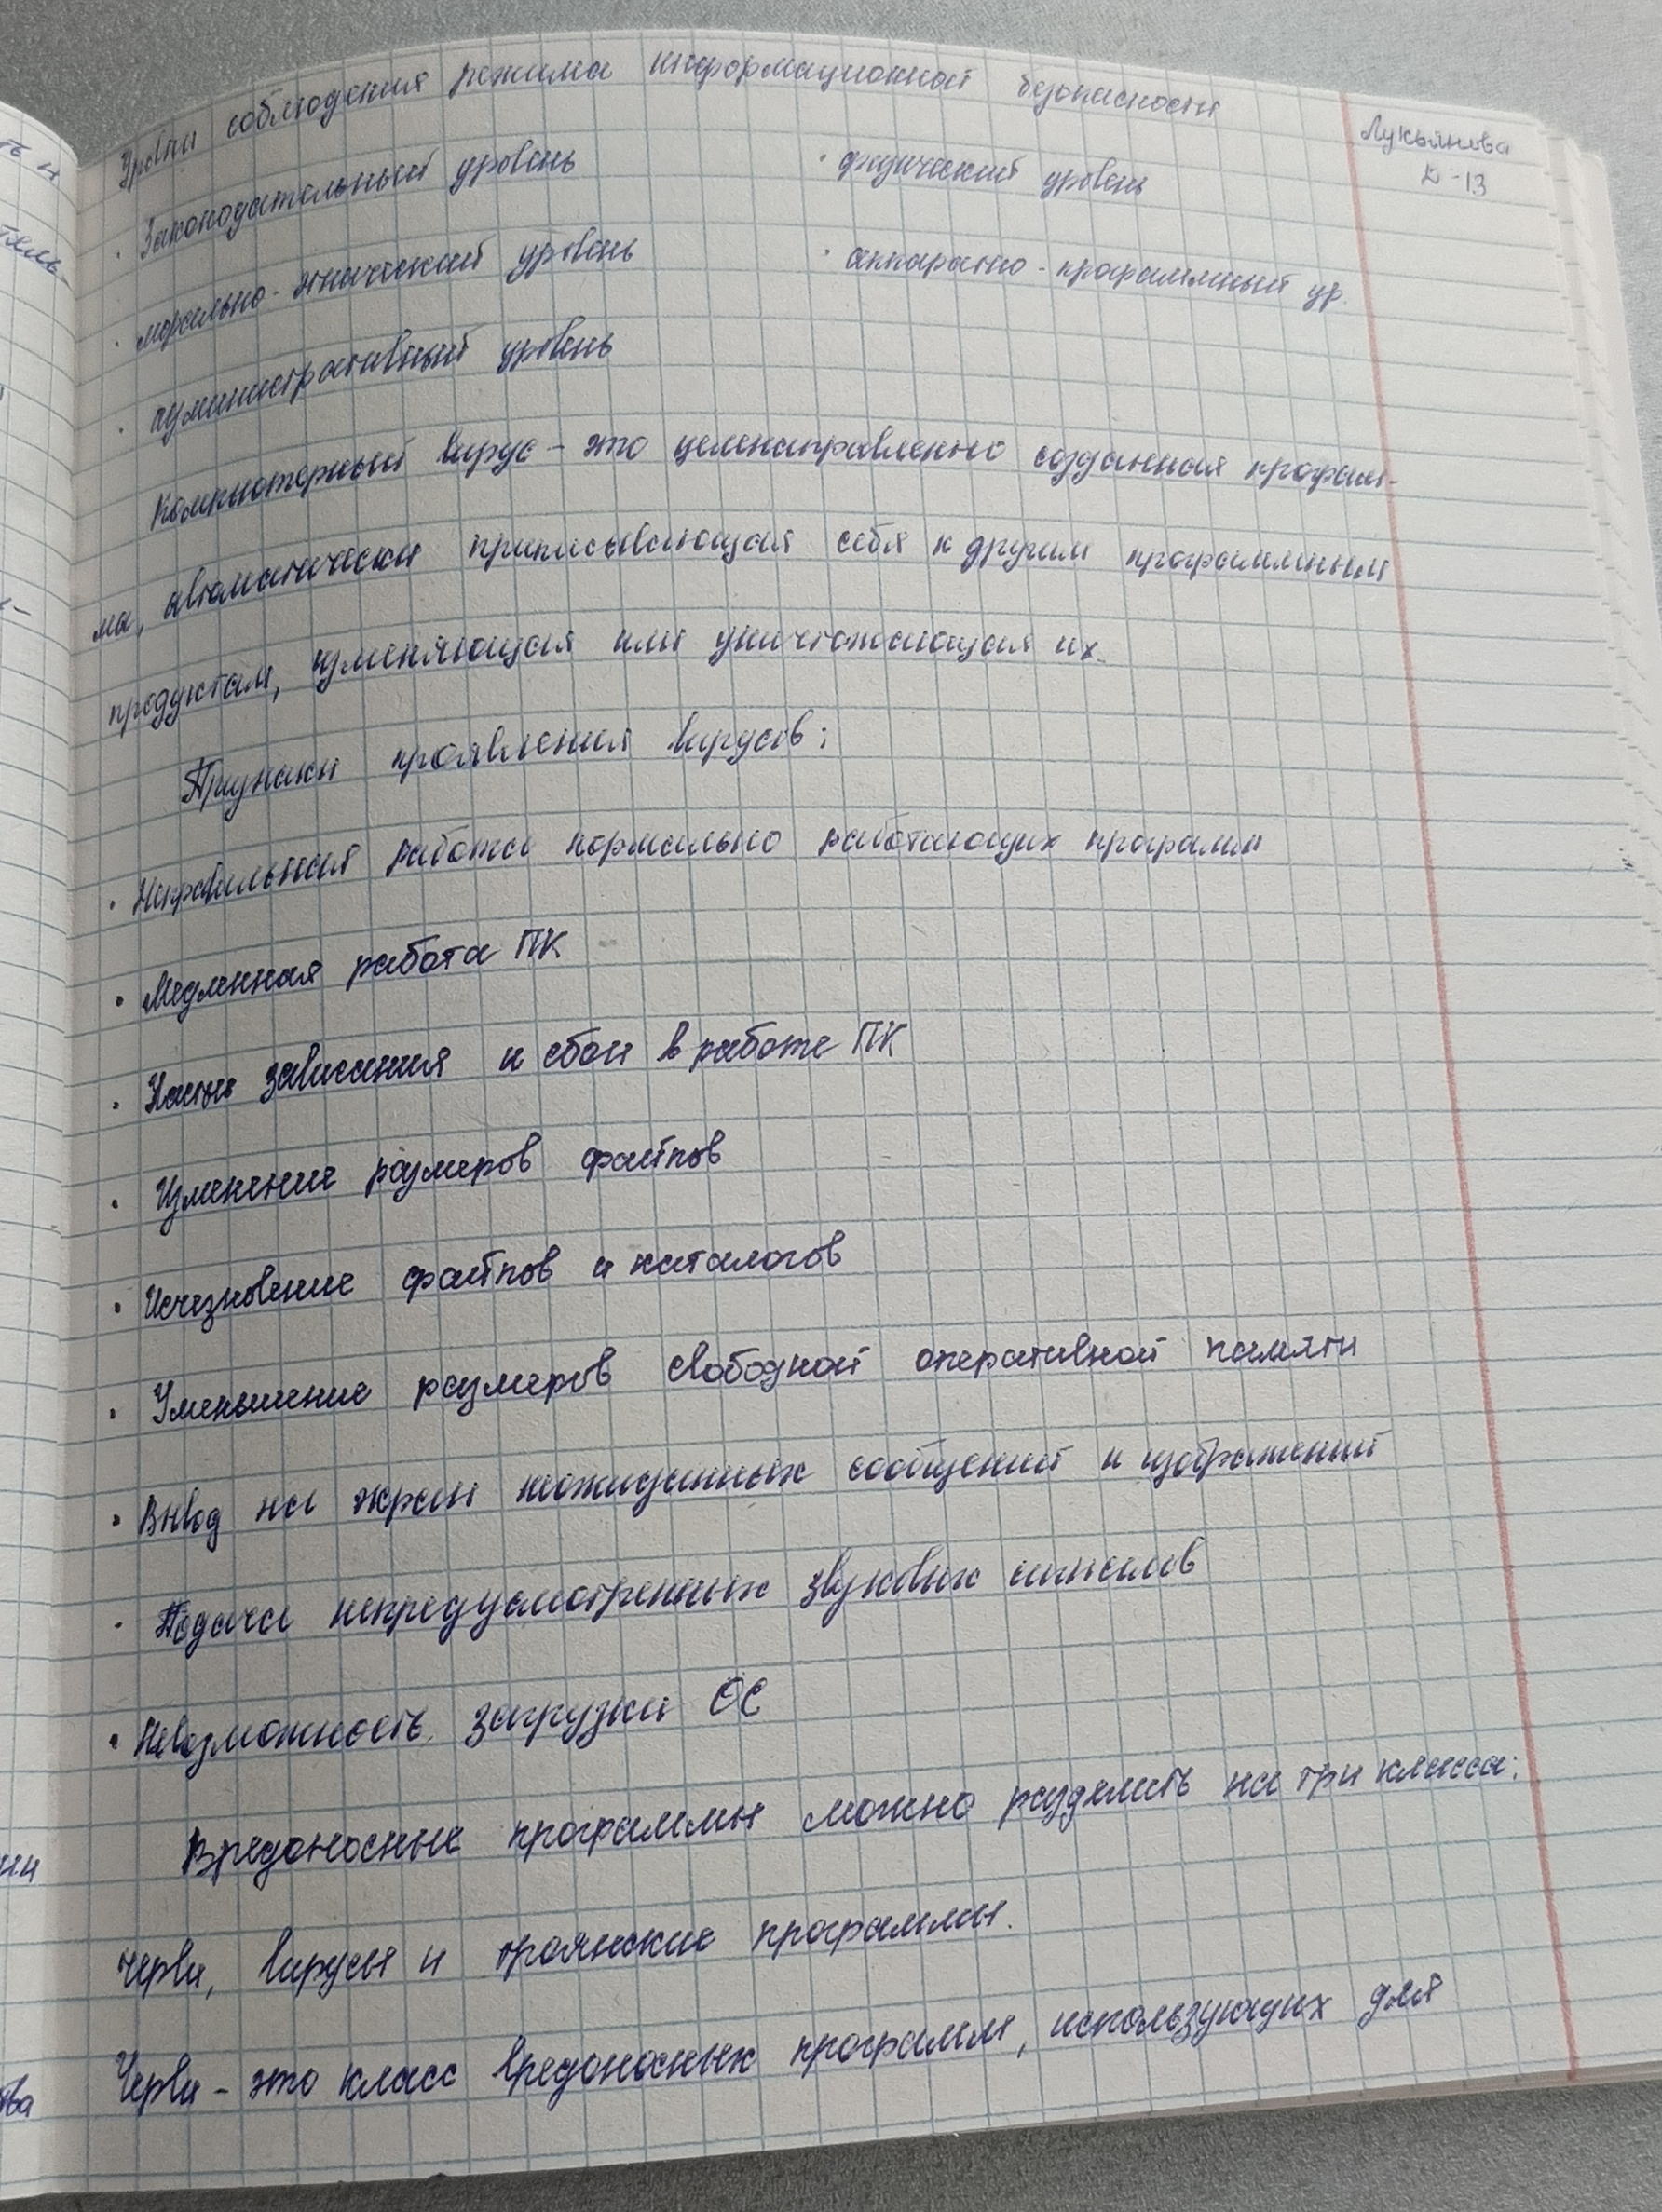 Уровни соблюдения режима информационной безопасности
Лукьянова
К-13
· Законодательный уровень
· физический уровень
· морально-этический уровень
· аппаратно-программный ур.
· административный уровень
Компьютерный вирус – это целенаправленно созданная програм-
ма, автоматически приписывающая себя к другим программным
продуктам, изменяющая или уничтожающая их.
Признаки проявления вирусов:
· Неправильная работа нормально работающих программ
· Медленная работа ПК
· Частые зависания и сбои в работе ПК
· Изменение размеров файлов
· Исчезновение файлов и каталогов
· Уменьшение размеров свободной оперативной памяти
· Вывод на экран неожиданных сообщений и изображений
· Подача непредусмотренных звуковых сигналов
· Невозможность загрузки ОС
Вредоносные программы можно разделить на три класса:
черви, вирусы и троянские программы.
Черви – это класс вредоносных программ, использующих для